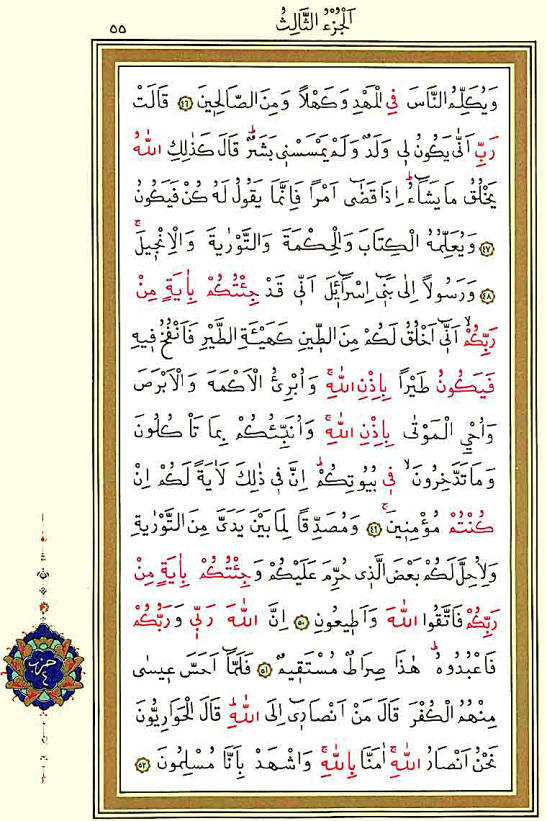 اَلْجُزْءُ الثَّالِثُ
٥٥
وَيُكَلِّمُ النَّاسَ فِي الْمَهْدِ وَكَهْلاً وَمِنَ الصَّالِحٖينَ ﴿٤٦﴾ قَالَتْ
رَبِّ اَنّٰى يَكُونُ لٖي وَلَدٌ وَلَمْ يَمْسَسْنٖي بَشَرٌۜ قَالَ كَذٰلِكِ اللّٰهُ
يَخْلُقُ مَا يَشَٓاءُۜ اِذَا قَضٰٓى اَمْراً فَاِنَّمَا يَقُولُ لَهُ كُنْ فَيَكُونُ
﴿٤٧﴾ وَيُعَلِّمُهُ الْكِتَابَ وَالْحِكْمَةَ وَالتَّوْرٰيةَ وَالْاِنْجٖيلَۚ
﴿٤٨﴾ وَرَسُولاً اِلٰى بَنٖٓي اِسْرَٓائٖلَ اَنّٖي قَدْ جِئْتُكُمْ بِاٰيَةٍ مِنْ
رَبِّكُمْۙ اَنّٖٓي اَخْلُقُ لَكُمْ مِنَ الطّٖينِ كَهَيْـَٔةِ الطَّيْرِ فَاَنْفُخُ فٖيهِ
فَيَكُونُ طَيْراً بِاِذْنِ اللّٰهِۚ وَاُبْرِئُ الْاَكْمَهَ وَالْاَبْرَصَ
وَاُحْيِ الْمَوْتٰى بِاِذْنِ اللّٰهِۚ وَاُنَبِّئُكُمْ بِمَا تَأْكُلُونَ
وَمَا تَدَّخِرُونَۙ فٖي بُيُوتِكُمْۜ اِنَّ فٖي ذٰلِكَ لَاٰيَةً لَكُمْ اِنْ
كُنْتُمْ مُؤْمِنٖينَۚ ﴿٤٩﴾ وَمُصَدِّقاً لِمَا بَيْنَ يَدَيَّ مِنَ التَّوْرٰيةِ
وَلِاُحِلَّ لَكُمْ بَعْضَ الَّذٖي حُرِّمَ عَلَيْكُمْ وَجِئْتُكُمْ بِاٰيَةٍ مِنْ
رَبِّكُمْ فَاتَّقُوا اللّٰهَ وَاَطٖيعُونِ ﴿٥٠﴾ اِنَّ اللّٰهَ رَبّٖي وَرَبُّكُمْ
فَاعْبُدُوهُۜ هٰذَا صِرَاطٌ مُسْتَقٖيمٌ ﴿٥١﴾ فَلَمَّٓا اَحَسَّ عٖيسٰى
مِنْهُمُ الْكُفْرَ قَالَ مَنْ اَنْصَارٖٓي اِلَى اللّٰهِۜ قَالَ الْحَوَارِيُّونَ
نَحْنُ اَنْصَارُ اللّٰهِۚ اٰمَنَّا بِاللّٰهِۚ وَاشْهَدْ بِاَنَّا مُسْلِمُونَ ﴿٥٢﴾
حزب
٤